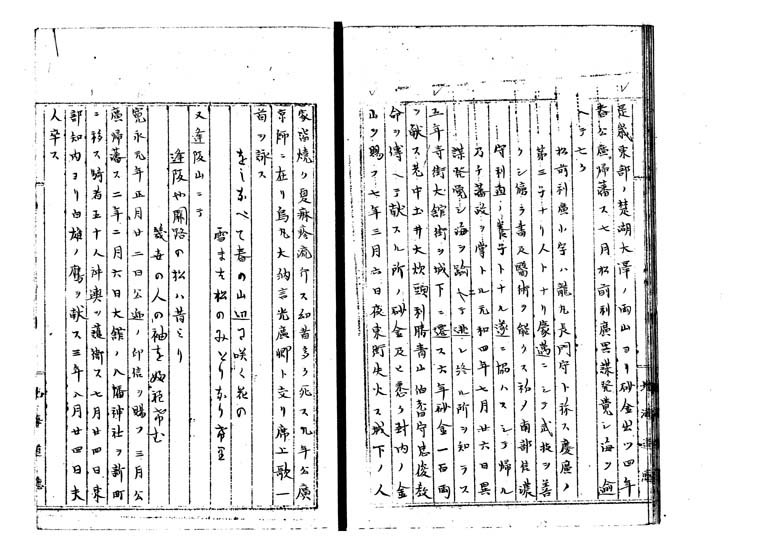 是歳東部ノ楚湖大澤ノ両山ヨリ砂金出ツ四年
春公廣帰藩ス七月松前利廣異謀発覚シ海ヲ踰
ヘテ亡ク
松前利廣小字ハ龍丸長門守ト称ス慶廣ノ
第三子ナリ人トナリ豪邁ニシテ武技ヲ善
クシ傍ラ書及醫術ヲ能クス初ノ南部信濃
守利直ノ養子トナル遂ニ協ハスシテ帰ル
乃チ藩政ヲ掌トル元和四年七月廿六日異
謀発覚シ海ヲ踰ヘテ逃レ終ル所ヲ知ラス
五年寺街大館街ヲ城下ニ遷ス六年砂金一百両
ヲ献ス老中土井大炊頭利勝青山伯耆守忠俊教
命ヲ傳ヘテ献スル所ノ砂金及ヒ悉ク封内ノ金
山ヲ賜フ七年三月六日夜東町失火ス城下ノ人
家皆焼ク夏麻疹流行ス和昔多ク死ス九年公廣
京師ニ在リ烏丸大納言光廣卿ト交リ席上歌一
首ヲ詠ス
をしなべて春の山辺に咲く花の
雪まも松のみとりなり帝里
又逢阪山ニテ
逢阪や関路の松ハ昔より
幾世の人の袖を
寛永元年正月廿二日公廻ノ印信ヲ賜フ三月公
廣帰藩ス二年二月六日大館ノ八幡神社ヲ新町
ニ移ス騎者五十人神輿ヲ護衛ス七月廿四日東
部知内ヨリ白雄ノ鷹ヲ献ス三年八月廿四日夫
人卒ス
北海道廳